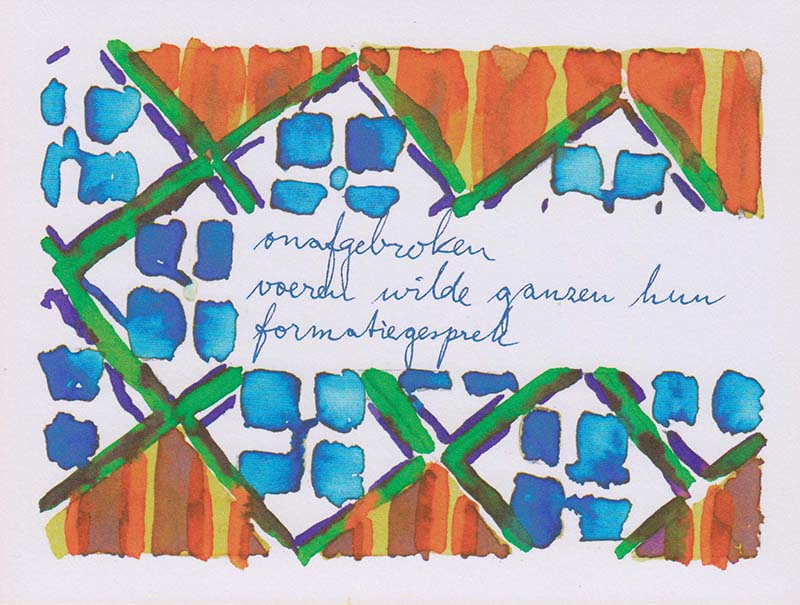 onafgebroken
voeren wilde ganzen hun
formatiegesprek